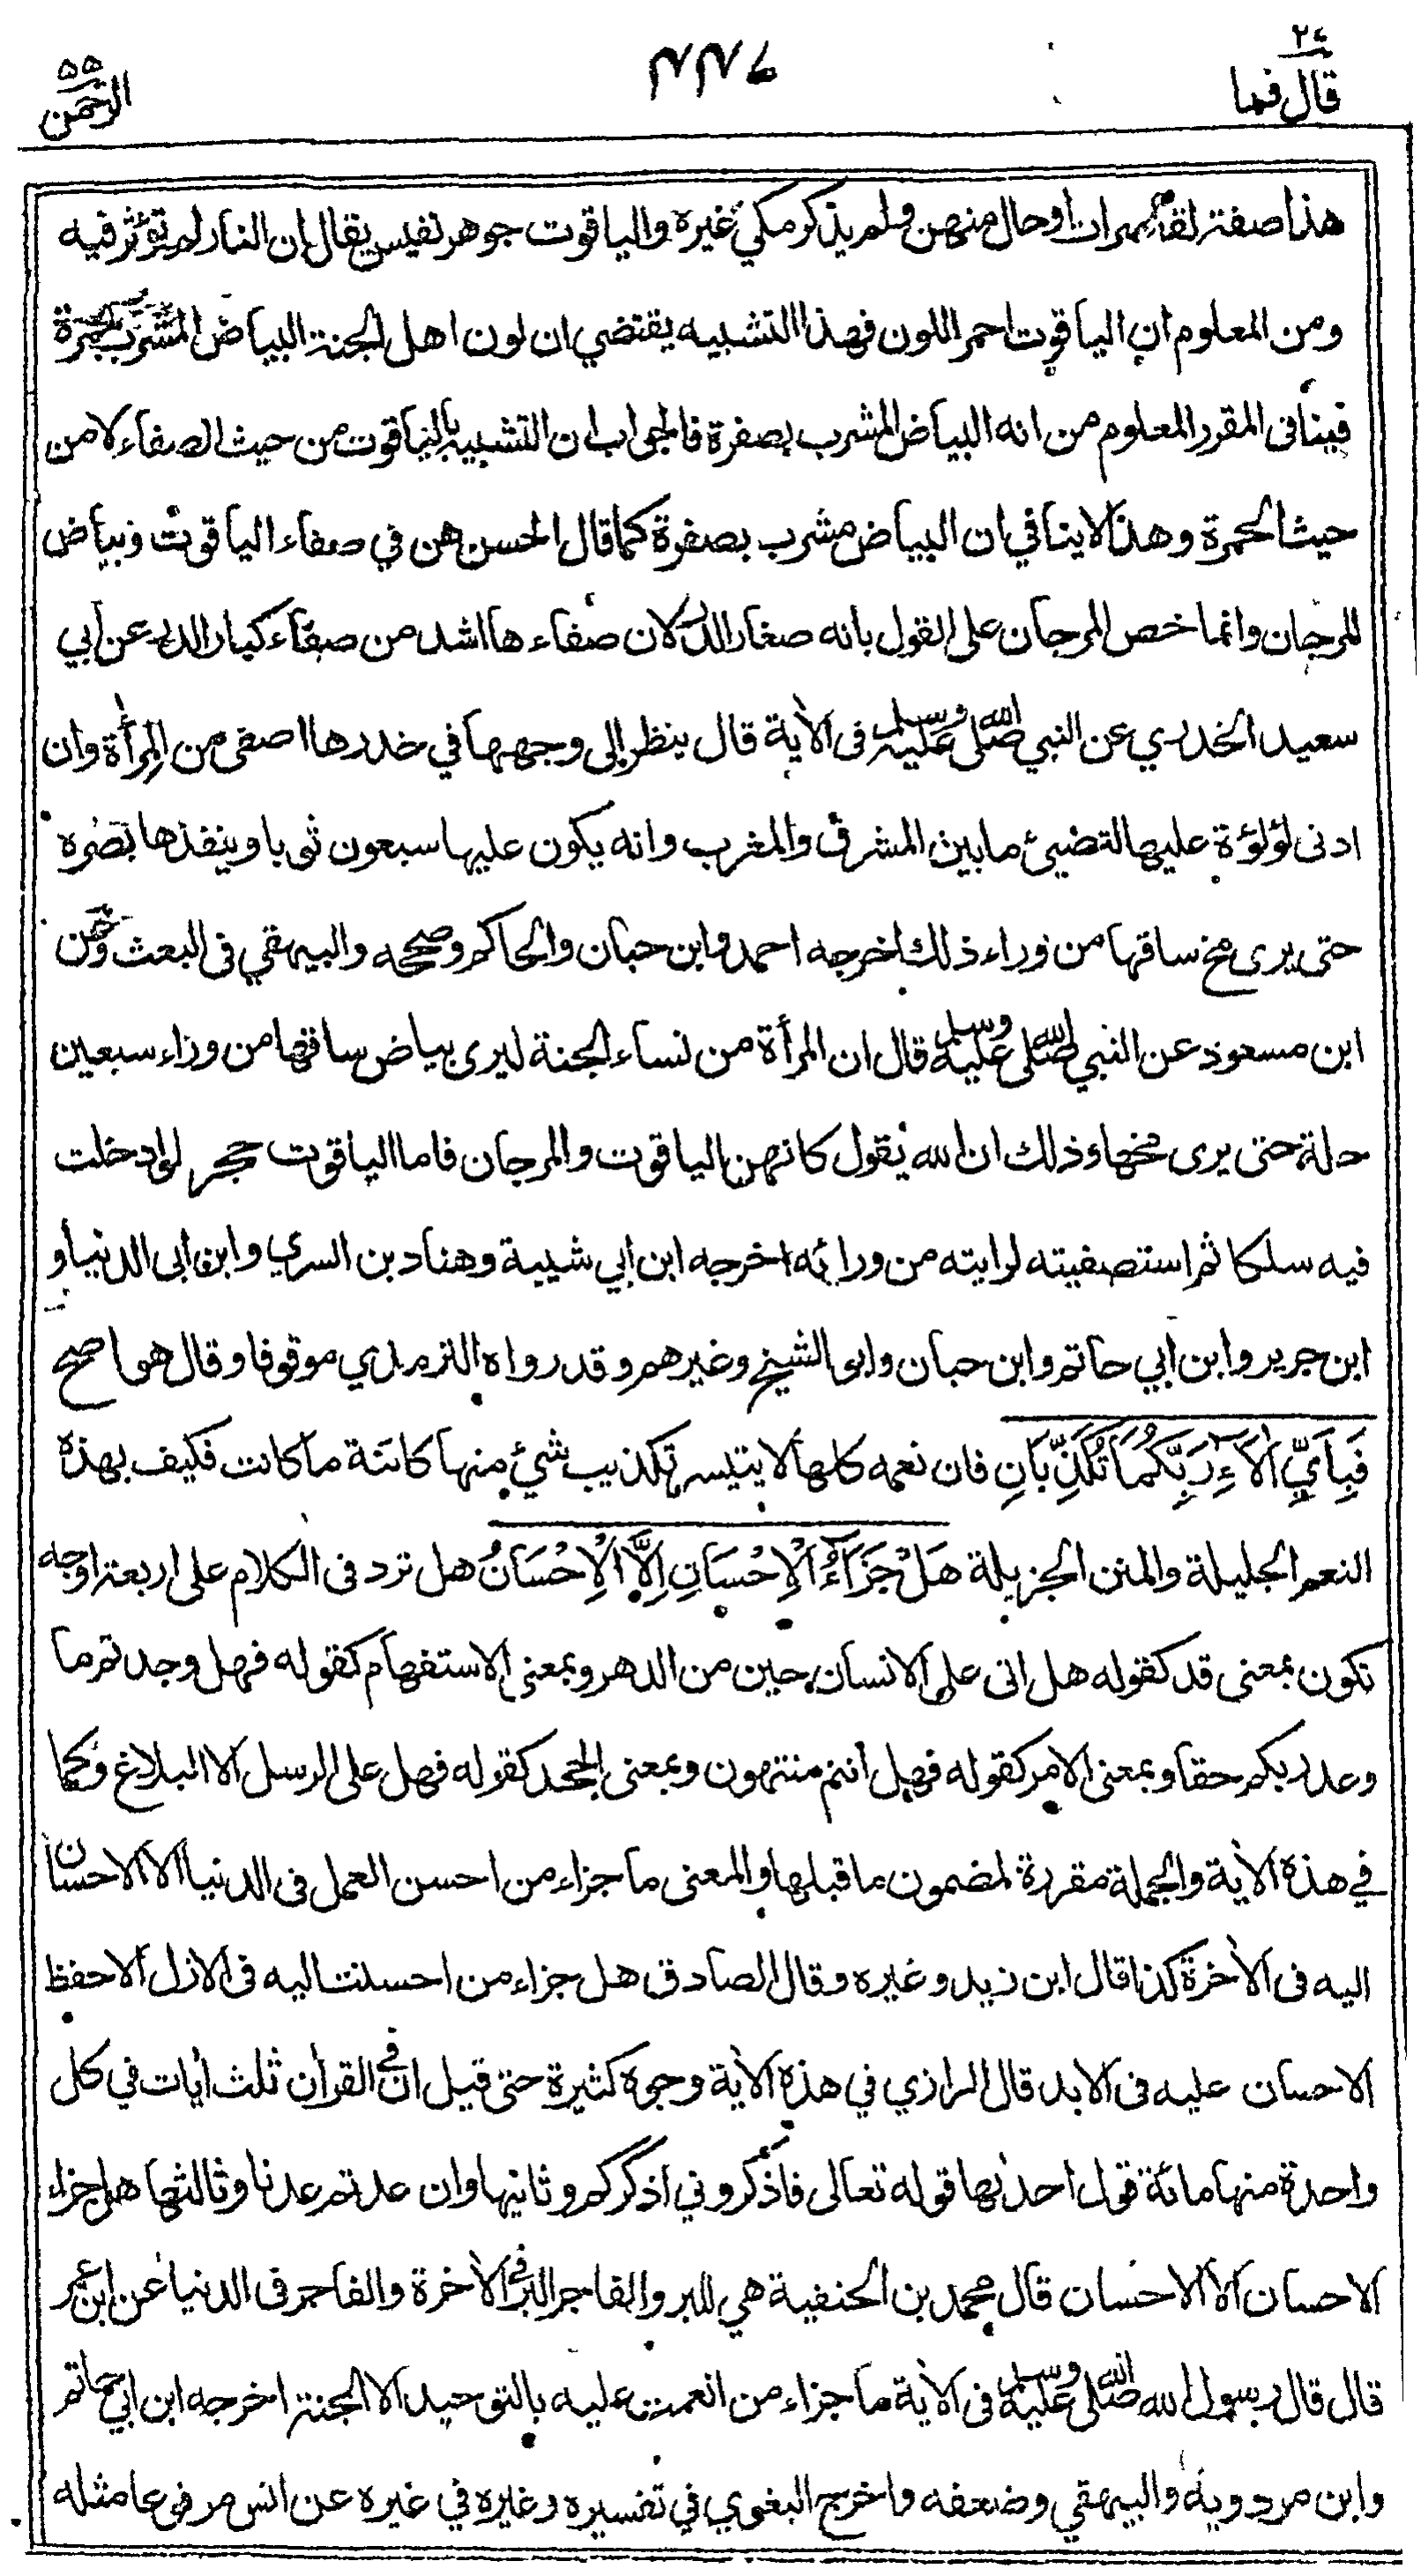 قال فما ٢٧
٤٤٦
الرحمن ٥٥
هذا صفة لقاصرات او حال منهن ولم يذكر مكي غيره والياقوت جوهر نفيس يقال ان النار لم تؤثر فيه
ومن المعلوم ان الياقوت احمر اللون فهذا التشبيه يقتضي ان لون اهل الجنة البياض المشرب بحمرة
فينافى المقرر المعلوم من انه البياض المشرب بصفرة فالجواب ان التشبيه بالياقوت من حيث الصفاء لا من
حيث الحمرة وهذا لا ينافي ان البياض مشرب بصفرة كما قال الحسن هن في صفاء الياقوت وبياض
المرجان وانما خص المرجان على القول بانه صغار الدر لان صفاءها اشد من صفاء كبار الدر عن أبي
سعيد الخدري عن النبي صلى الله عليه وسلم فى الأية قال ينظر إلى وجهها في خدرها اصفى من المرأة وان
ادنى لؤلؤة عليها لتضيئ ما بين المشرق والمغرب وانه يكون عليها سبعون ثوبا وينفذها بصره
حتى يرى مخ ساقها من وراء ذلك اخرجه احمد وابن حبان والحاكم وصححه والبيهقي فى البعث وعن
ابن مسعود عن النبي صلى الله عليه وسلم قال ان المرأة من نساء الجنة ليرى بياض ساقها من وراء سبعين
حلة حتى يرى مخها وذلك ان الله يقول كانهن الياقوت والمرجان فاما الياقوت حجر لو ادخلت
فيه سلكا ثم استصفيته لرايته من ورائه اخرجه ابن ابي شيبة وهناد بن السري وابن ابى الدنيا و
ابن جرير وابن أبي حاتم وابن حبان وابو الشيخ وغيرهم وقد رواه الترمذي موقوفا وقال هو اصح
فَبِأَيِّ اٰلَآءِ رَبِّكُمَا تُكَذِّبَانِ فان نعمه كلها لا يتيسر تكذيب شيئ منها كائنة ما كانت فكيف بهذه
النعم الجليلة والمنن الجزيلة هَلْ جَزَآءُ الْإِحْسَانِ اِلَّا الْإِحْسَانُ هل ترد فى الكلام على اربعة اوجه
تكون بمعنى قد كقوله هل اتى على الانسان حين من الدهر وبمعنى الاستفهام كقوله فهل وجدتم ما
وعد ربكم حقا وبمعنى الامر كقوله فهل أنتم منتهون وبمعنى الجحد كقوله فهل على الرسل الا البلاغ وكما
في هذه الأية والجملة مقررة لمضمون ما قبلها والمعنى ما جزاء من احسن العمل فى الدنيا الا الاحسان
اليه فى الأخرة كذا قال ابن زيد وغيره وقال الصادق هل جزاء من احسنت اليه فى الازل الا حفظ
الاحسان عليه فى الابد قال الرازي في هذه الأية وجوه كثيرة حتى قيل ان في القرأن ثلث أيات في كل
واحدة منها مائة قول احدٰىها قوله تعالى فاذكروني اذكركم وثانيها وان عدتم عدنا وثالثها هل جزاء
الاحسان الا الاحسان قال محمد بن الحنفية هي للبر والفاجر البر في الأخرة والفاجر فى الدنيا عن ابن عمر
قال قال رسول الله صلى الله عليه وسلم فى الأية ما جزاء من انعمت عليه بالتوحيد الا الجنة اخرجه ابن ابي حاتم
وابن مردويه والبيهقي وضعفه واخرج البغوي في تفسيره وغيره في غيره عن انس مرفوعا مثله